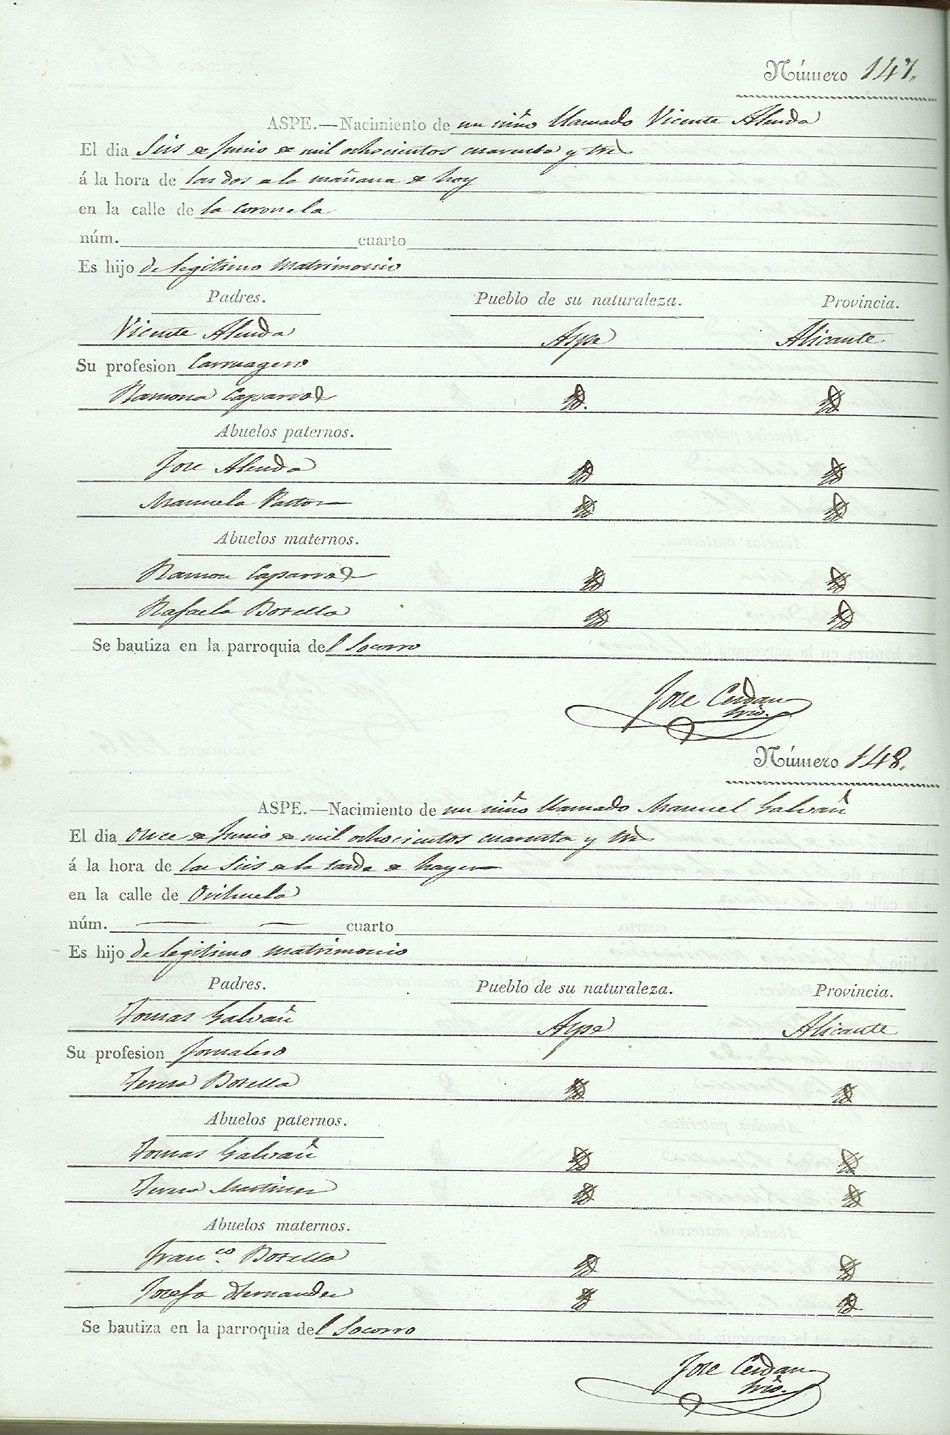 Número 147.
ASPE.—Nacimiento de un niño llamado Vicente Alenda
El dia Seis de Junio de mil ochocientos cuarenta y tres
á la hora de las dos de la mañana de hoy
en la calle de la Coronela
núm. cuarto
Es hijo de legitimo matrimonio
Padres. Pueblo de su naturaleza. Provincia.
Vicente Alenda Aspe Alicante
Su profesion Carruagero
Ramona Caparros id. id
Abuelos paternos.
Jose Alenda id id
Manuela Pastor id id
Abuelos maternos.
Ramon Caparros id id
Rafaela Botella id id
Se bautiza en la parroquia del Socorro
Jose Cerdan
Srio.
Número 148.
ASPE.—Nacimiento de un niño llamado Manuel Galvañ
El dia Once de Junio de mil ochocientos cuarenta y tres
á la hora de las Seis de la tarde de hayer
en la calle de Orihuela
núm. — — cuarto
Es hijo de legitimo matrimonio
Padres. Pueblo de su naturaleza. Provincia.
Tomas Galvañ Aspe Alicante
Su profesion Jornalero
Teresa Botella id id
Abuelos paternos.
Tomas Galvañ id id
Teresa Martinez id id
Abuelos maternos.
Franco. Botella id id
Josefa Hernandez id id
Se bautiza en la parroquia del Socorro
Jose Cerdan
Srio.